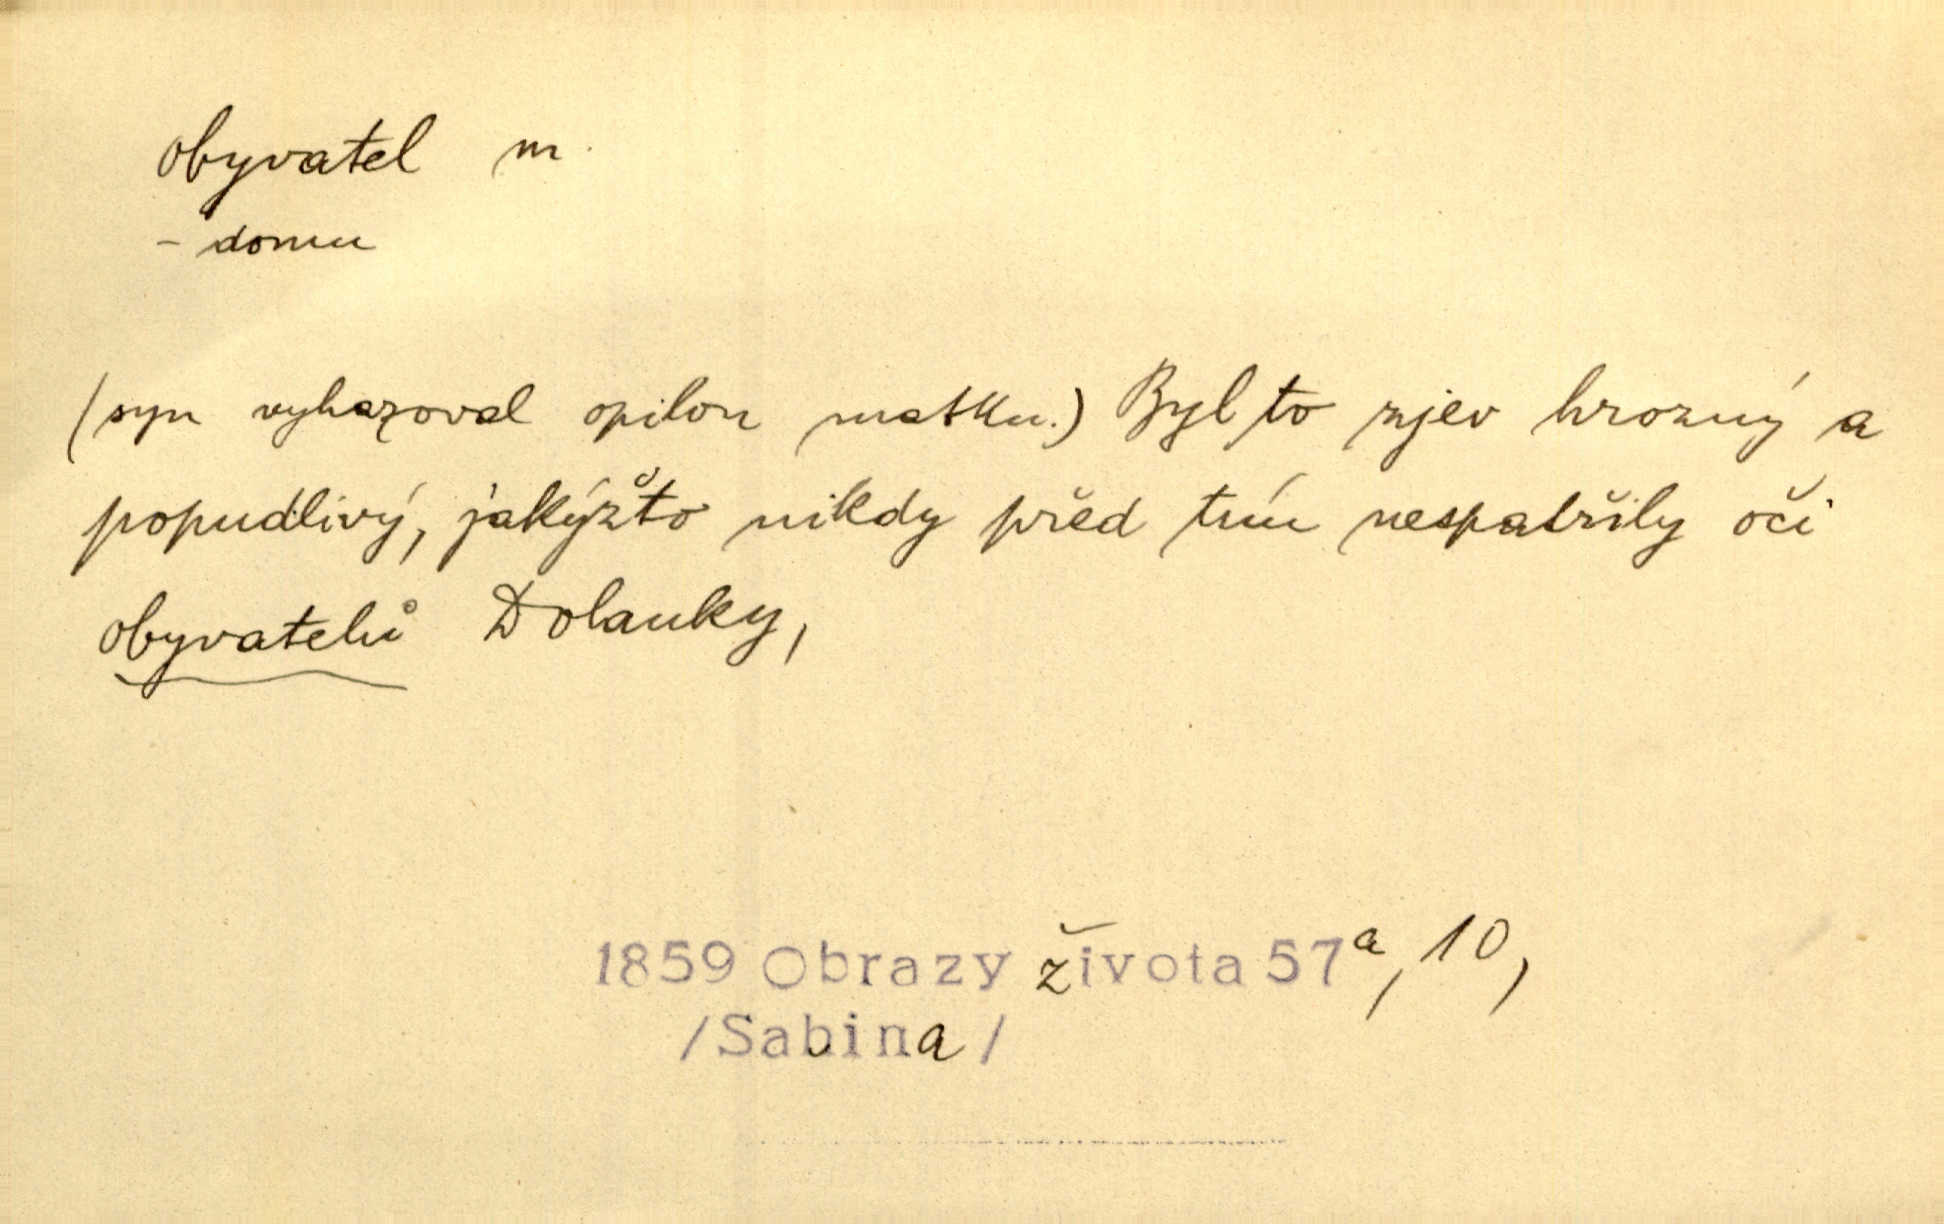 obyvatel m.
- domu
(syn vyhazoval opilou matku.) Byl to zjev hrozný a
popudlivý, jakýžto nikdy před tím nespatřily oči
obyvatelů Dolanky,
1859 Obrazy života 57a, 10,
/Sabina/